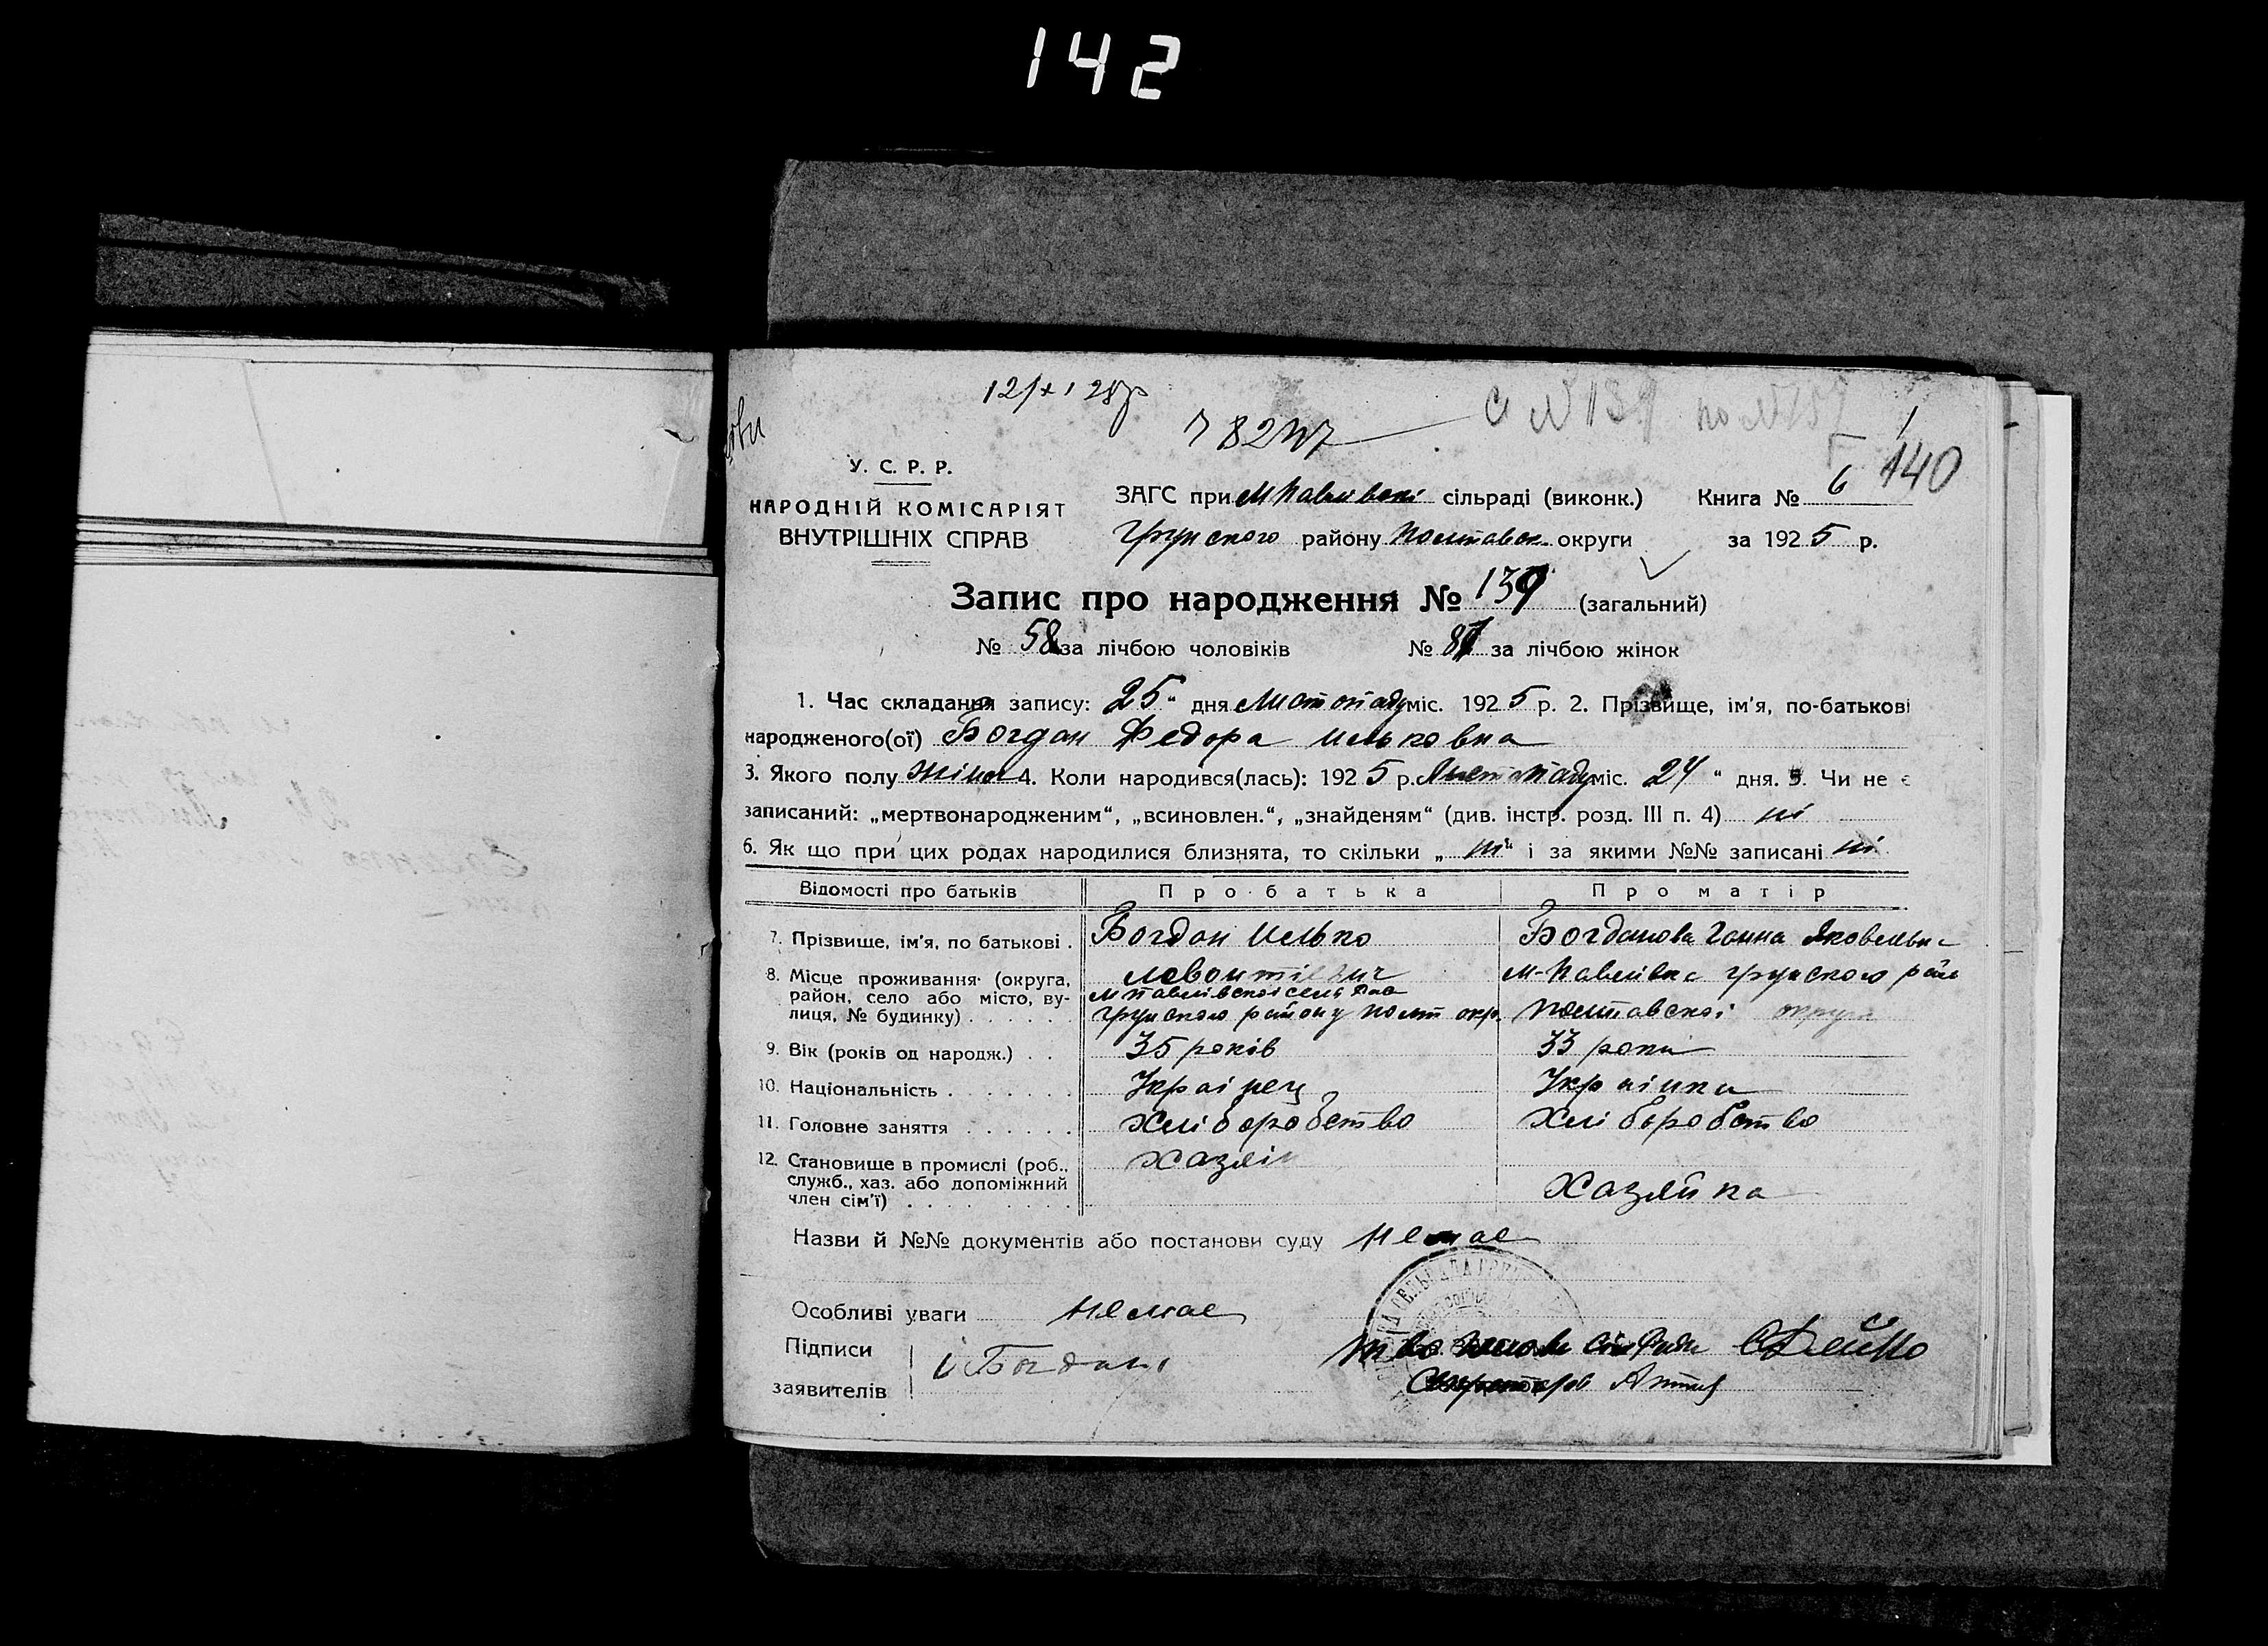 142
У. С. Р. Р.
НАРОДНІЙ КОМІСАРІЯТ
ВНУТРІШНІХ СПРАВ
140
ЗАГС при М Павлівскі сільраді (виконк.) Книга № 6
Грунского району Полтавск округи за 1925 р.
Запис про народження № 139 (загальний)
№ 58 за лічбою чоловіків № 81 за лічбою жінок
1. Час складання запису: 25 " дня Листопаду міс. 1925 р. 2. Прізвище, ім'я, по-батькові
народженого(ої) Богдан Федора Ильковна
3. Якого полу жіноч 4. Коли народився(лась): 1925 р. Листопаду міс. 24 " дня. 5. Чи не є
записаний: „мертвонародженим“, „всиновлен.“, „знайденям“ (див. інстр. розд. III п. 4) ні
6. Як що при цих родах народилися близнята, то скільки „ ні “ і за якими №№ записані ні
Відомості про батьків Про батька Про матір
7. Прізвище, ім'я, по батькові . Богдан Илько Левонтієвич Богданова Ганна Яковльвна
8. Місце проживання (округа, район, село або місто, вулиця, № будинку) . . . . . .
М Павлівскої сель Рад
Грунского району Полт окр. М-Павлівка Грунского рай
Полтавскої округи
9. Вік (років од народж.) . . 35 років 33 роки
10. Національність . . . . . . . Українец Українка
11. Головне заняття . . . . . . Хліборобство Хліборобство
12. Становище в промислі (роб., служб., хаз. або допоміжний член сім'ї) . . . . . . . . Хазяін Хазяйка
Назви й №№ документів або постанови суду немає
Особливі уваги немає
Підписи
заявителів
і Богдан
Голови сіл Ради
Секретарь